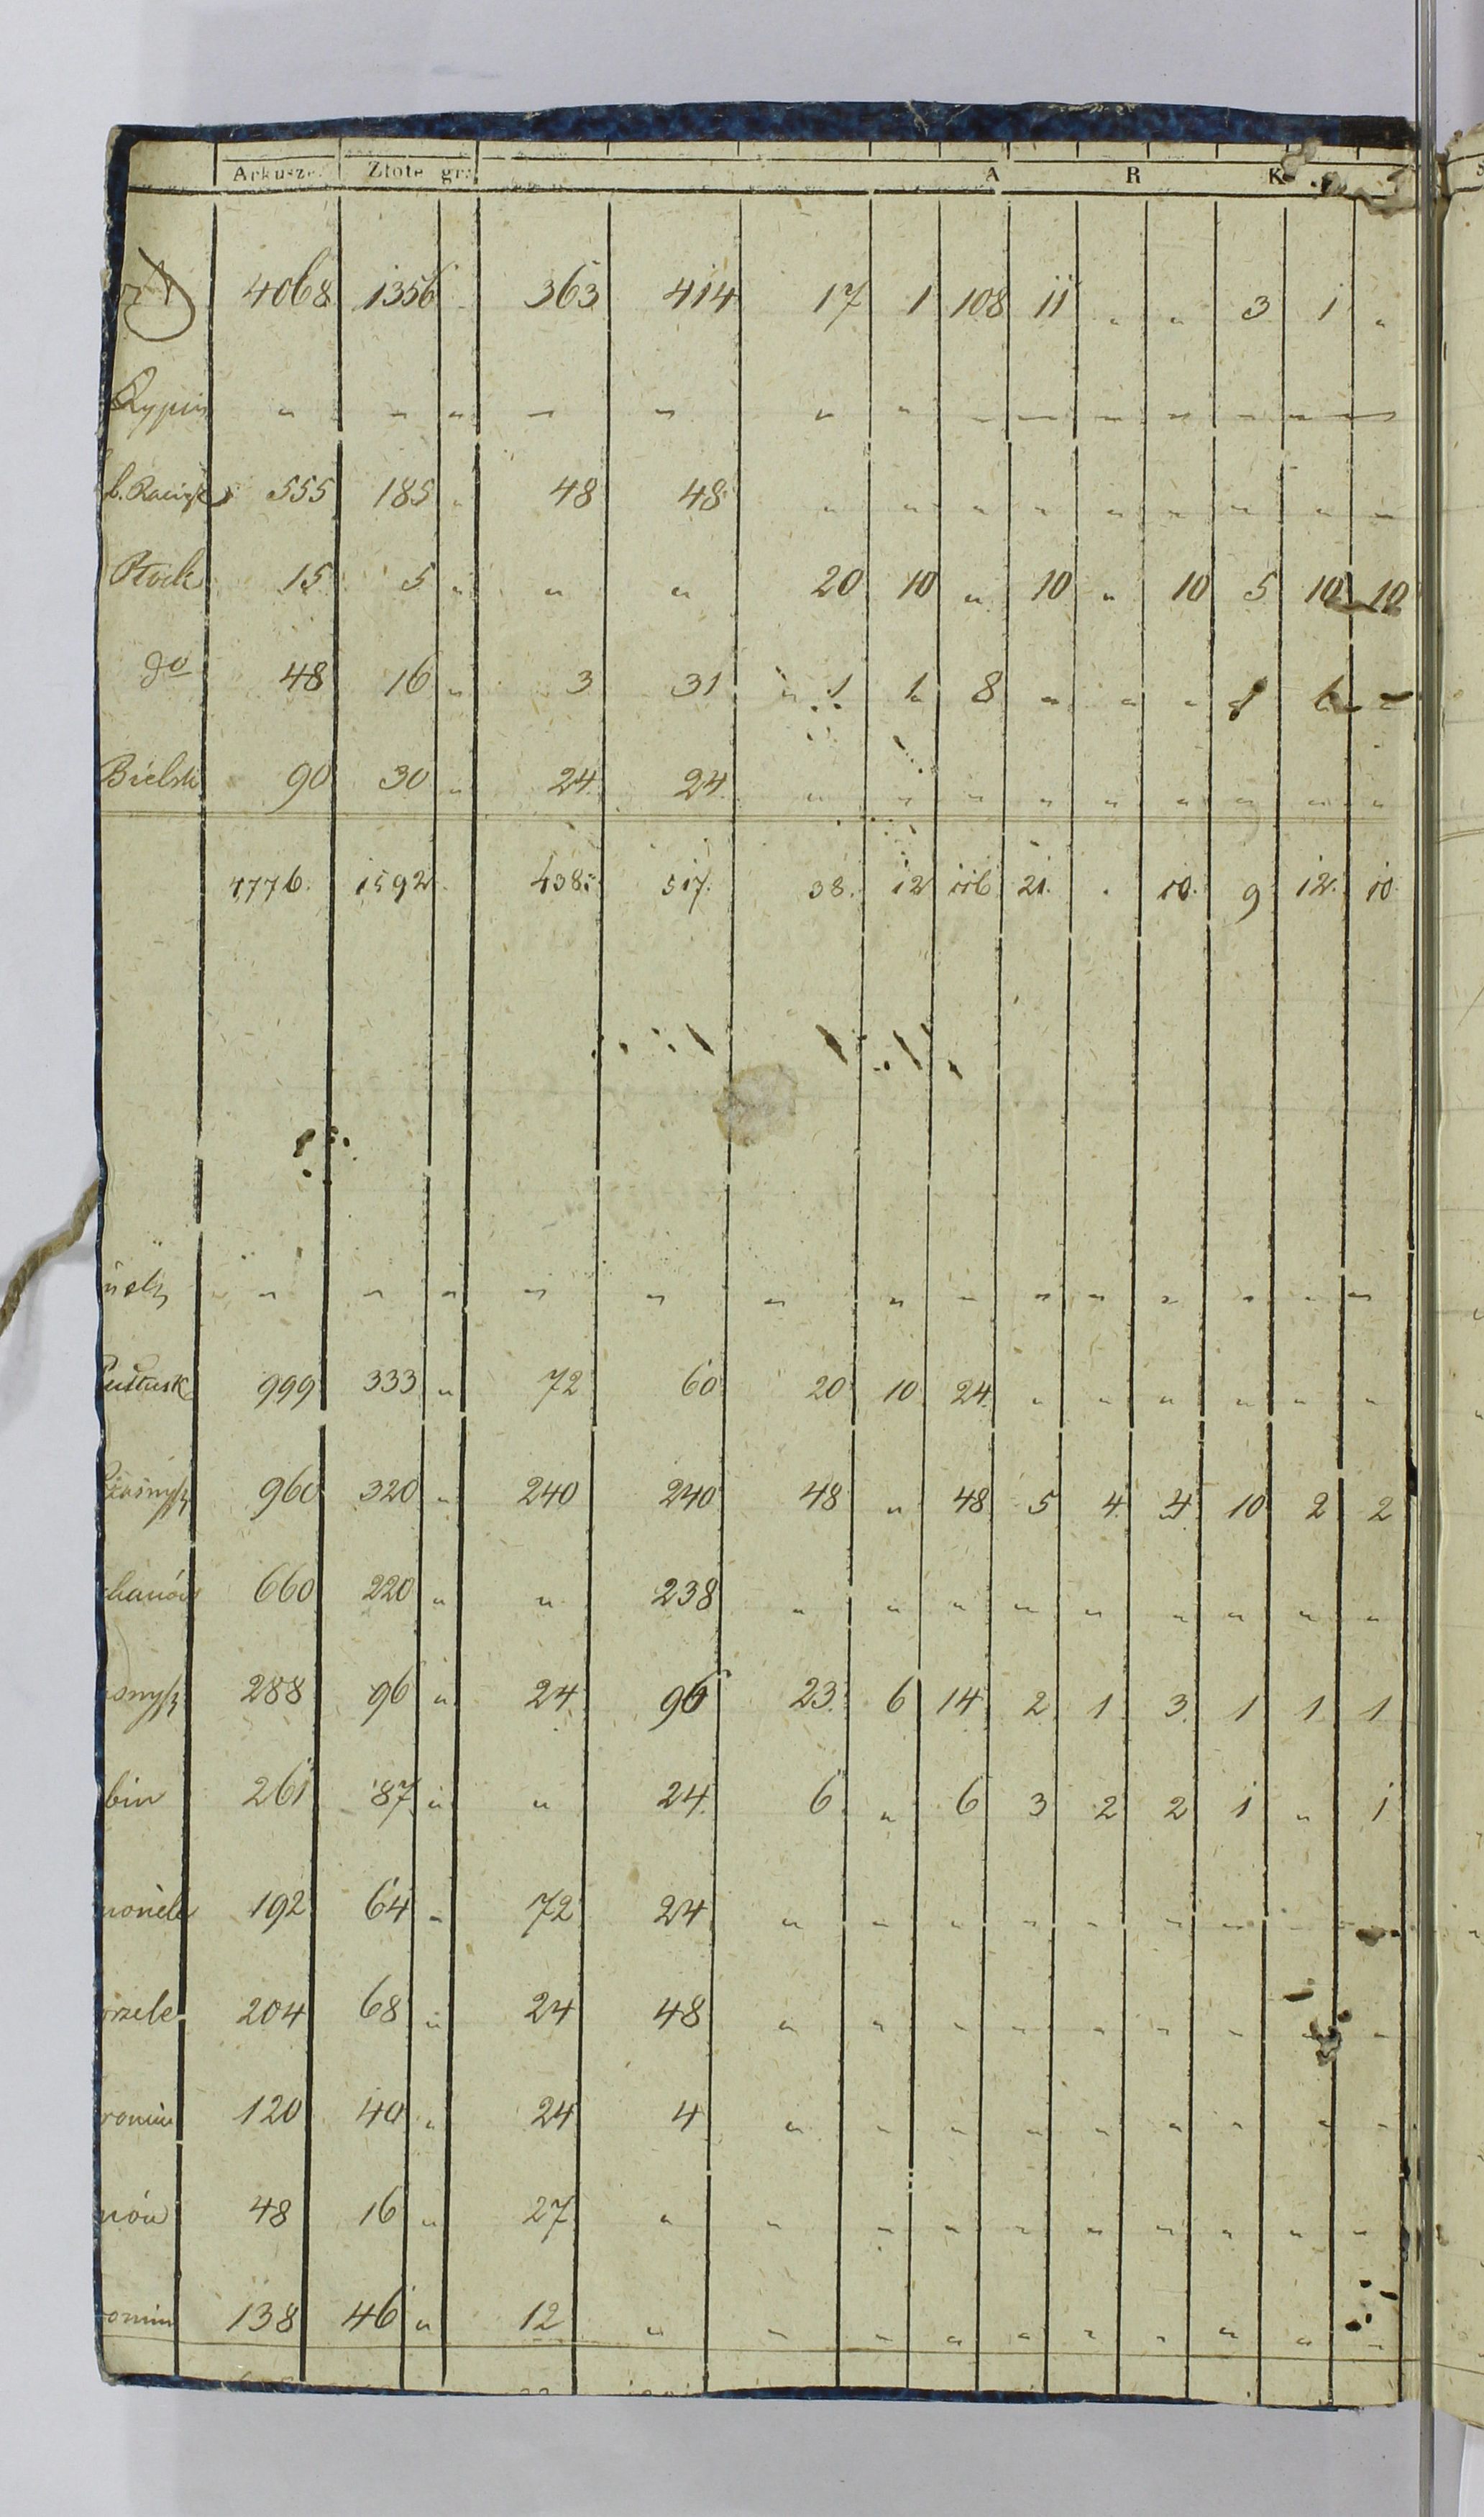 Arkusze Złote gr. A R K
4068 1356 „ 363 414 17 1 108 11 „ „ 3 1 „
Rypin „ „ „ „ „ „ „ „ „ „ „ „ „ „
555 185 „ 48 48 „ „ „ „ „ „ „ „ „
Płock 15 5 „ „ „ 20 10 „ 10 „ 10 5 10 10
do 48 16 „ 3 31 1 1 8 „ „ „ „
Bielsk 90 30 „ 24 24 „ „ „ „ „ „ „ „ „
4776. 1592. 438. 517. 38. 12 116 21. . 10. 9 12. 10
„ „ „ „ „ „ „ „ „ „ „ „ „ „
Pułtusk 999 333 „ 72 60 20 10 24 „ „ „ „ „ „
960 320 „ 240 240 48 „ 48 5 4 4 10 2 2
chanów 660 220 „ „ 238 „ „ „ „ „ „ „ „ „
snysz 288 96 „ 24 96 23 6 14 2 1 3 1 1 1
bin 261 87 „ „ 24 6 „ 6 3 2 2 1 „ 1
192 64 „ 72 24 „ „ „ „ „ „ „ „ „
rzele 204 68 „ 24 48 „ „ „ „ „ „ „ „ „
romin 120 40 „ 24 4 „ „ „ „ „ „ „ „ „
nów 48 16 „ 27 „ „ „ „ „ „ „ „ „ „
omin 138 46 „ 12 „ „ „ „ „ „ „ „ „ „